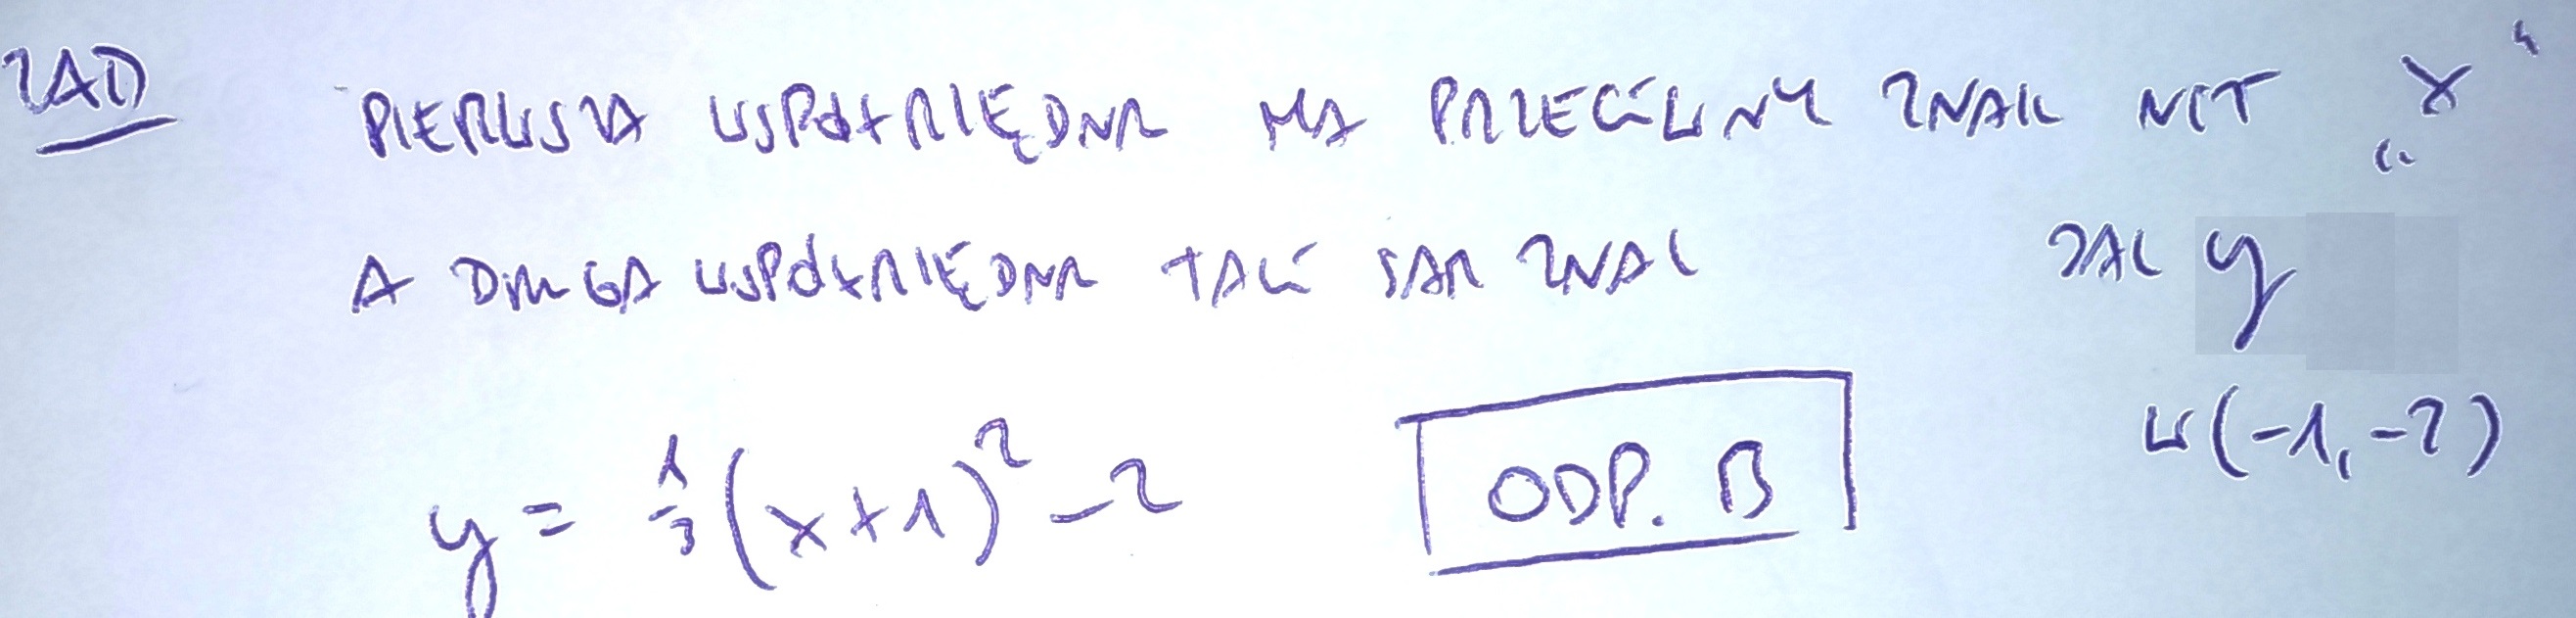 ZAD PIERWSZA WSPÓŁRZĘDNA MA PRZECIWNY ZNAK NIŻ „x”
A DRUGA WSPÓŁRZĘDNA TAKI SAM ZNAK JAK y
W(-1,-2)
y = 1/3(x+1)² -2 ODP. B